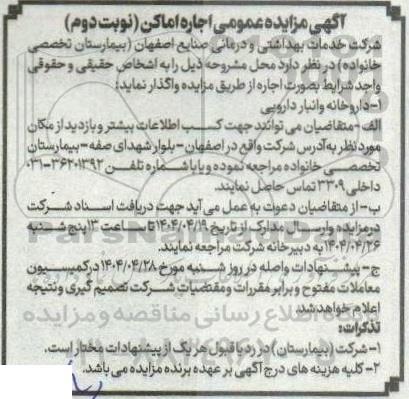 آگهی مزایده عمومی اجاره اماکن (نوبت دوم)
شرکت خدمات بهداشتی و درمانی صنایع اصفهان (بیمارستان تخصصی
خانواده) در نظر دارد محل مشروحه ذیل را به اشخاص حقیقی و حقوقی
واجد شرایط بصورت اجاره از طریق مزایده واگذار نماید:
۱-داروخانه وانبار دارویی
الف-متقاضیان می توانند جهت کسب اطلاعات بیشتر و بازدید از مکان
مورد نظر به آدرس شرکت واقع در اصفهان - بلوار شهدای صفه - بیمارستان
تخصصی خانواده مراجعه نموده و یا با شماره تلفن ۳۶۲۰۱۳۹۲-۰۳۱
داخلی ۳۳۰۹ تماس حاصل نمایند.
ب- از متقاضیان دعوت به عمل می آید جهت دریافت اسناد شرکت
در مزایده و ارسال مدارک از تاریخ ۱۴۰۴/۰۴/۱۹ تا ساعت ۱۳ پنج شنبه
۱۴۰۴/۰۴/۲۶ به دبیرخانه شرکت مراجعه نمایند.
ج- پیشنهادات واصله در روز شنبه مورخ ۱۴۰۴/۰۴/۲۸ در کمیسیون
معاملات مفتوح و برابر مقررات و مقتضیات شرکت تصمیم گیری و نتیجه
اعلام خواهد شد.
تذکرات:
۱- شرکت (بیمارستان) در رد یا قبول هر یک از پیشنهادات مختار است.
۲- کلیه هزینه های درج آگهی بر عهده برنده مزایده می باشد.